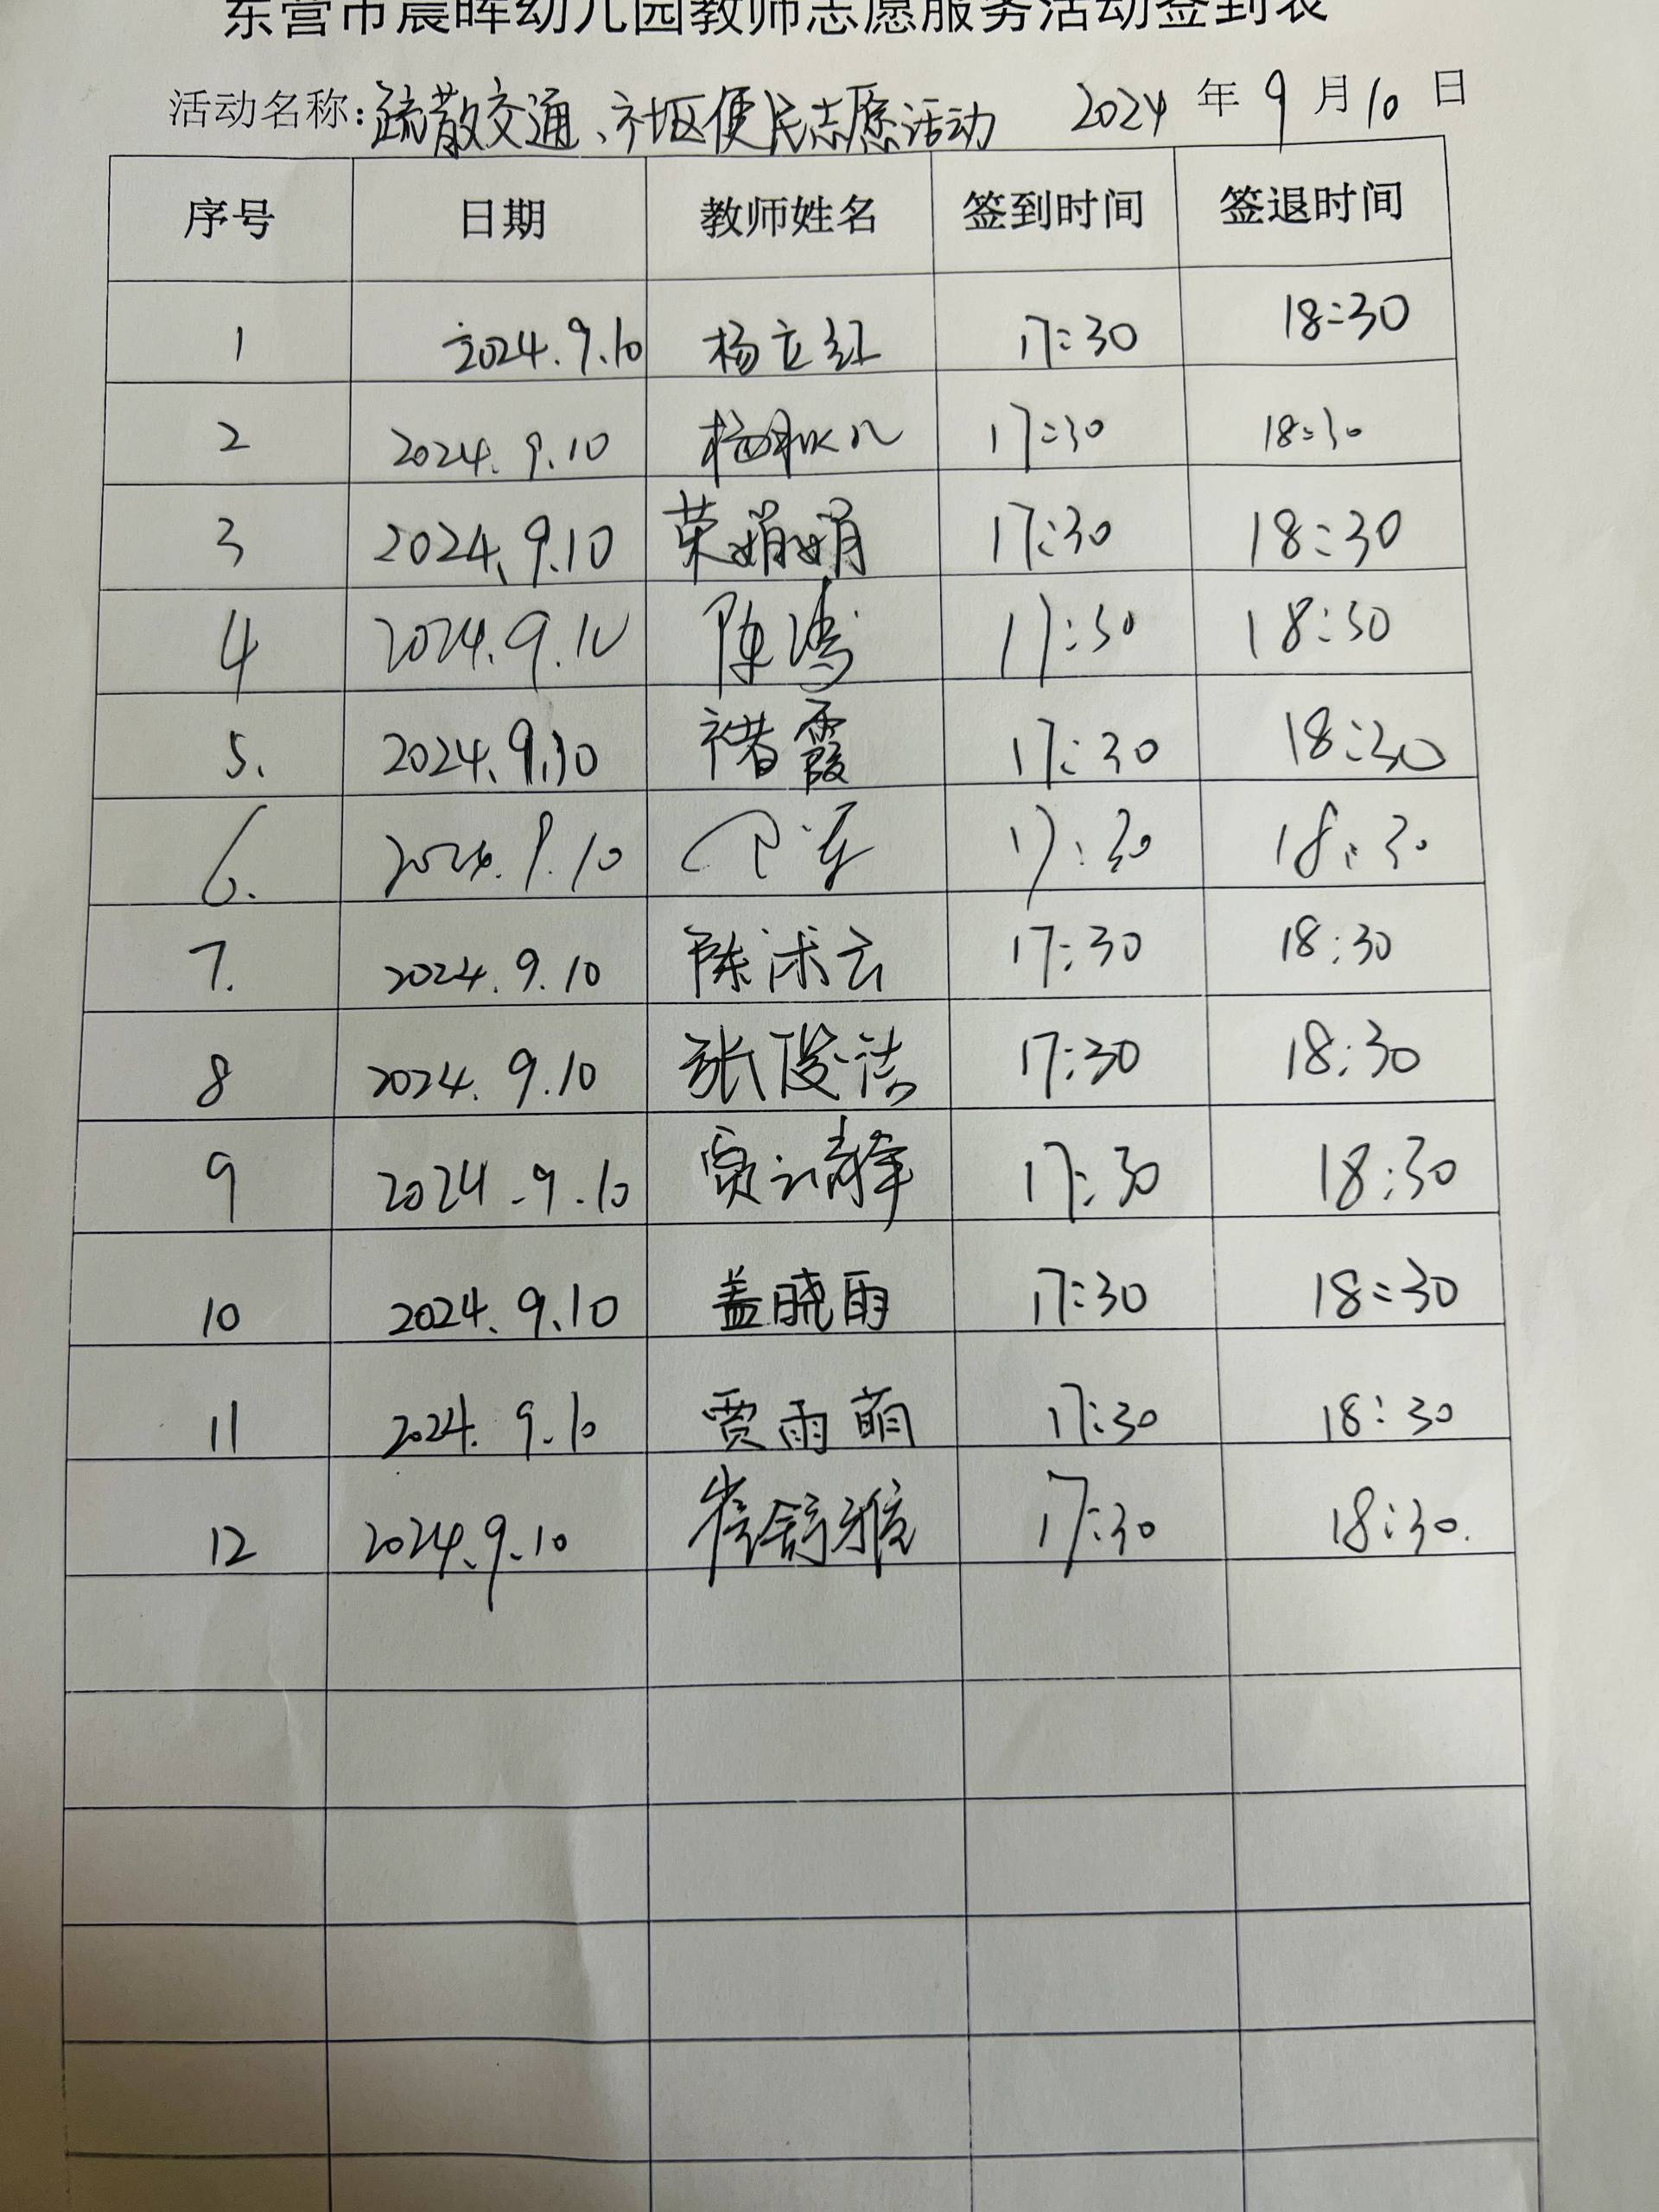 东营市晨晖幼儿园教师志愿服务活动签到表
活动名称:疏散交通、社区便民志愿活动 2024 年 9 月 10 日
序号 日期 教师姓名 签到时间 签退时间
1 2024.9.10 杨立红 17:30 18:30
2 2024.9.10 17:30 18:30
3 2024.9.10 荣娟娟 17:30 18:30
4 2024.9.10 陈 17:30 18:30
5. 2024.9.10 褚霞 17:30 18:30
6. 2024.9.10 17:30 18:30
7. 2024.9.10 陈沭云 17:30 18:30
8 2024.9.10 张俊洁 17:30 18:30
9 2024.9.10 贾靖 17:30 18:30
10 2024.9.10 盖晓雨 17:30 18:30
11 2024.9.10 贾雨萌 17:30 18:30
12 2024.9.10 崔舒雅 17:30 18:30.